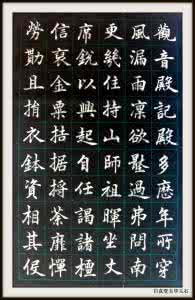 觀音殿記多歷年所穿
風漏雨凛欲壓弗問南
更幾住持山師祖暉坐丈
席銳以興起自任謁諸檀
信裒金粟拮据捋荼靡憚
勞勩且捐衣鉢資相其